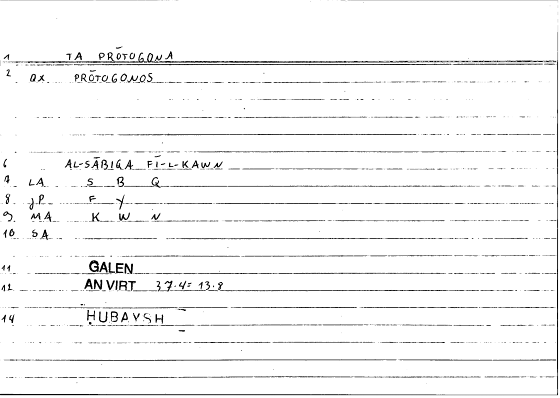 1 TA PRŌTOGONA
2 AX PRŌTOGONOS
6 AL-SĀBIGA FĪ-L-KAWN
7 LA S B Q
8 JP F Y
9 MA K W N
10 SA
11 GALEN
12 AN VIRT 37.4= 13.8
14 ḤUBAYSH